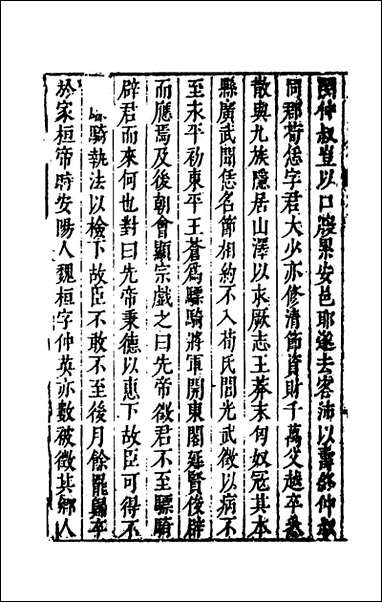 閔仲叔豈以口腹累安邑耶遂去客沛以壽終仲叔
同郡荀恁字君大少亦修清節資財千萬父越卒悉
散與九族隱居山澤以求厥志王莽末匈奴寇其本
縣廣武聞恁名節相約不入荀氏閭光武徵以病不
至永平初東平王蒼爲驃騎將軍開東閣延賢俊辟
而應焉及後朝會顯宗戲之曰先帝徵君不至驃騎
辟君而來何也對曰先帝秉德以惠下故臣可得不
騎執法以檢下故臣不敢不至後月餘罷歸卒
於家桓帝時安陽人魏桓字仲英亦數被徵其鄉人